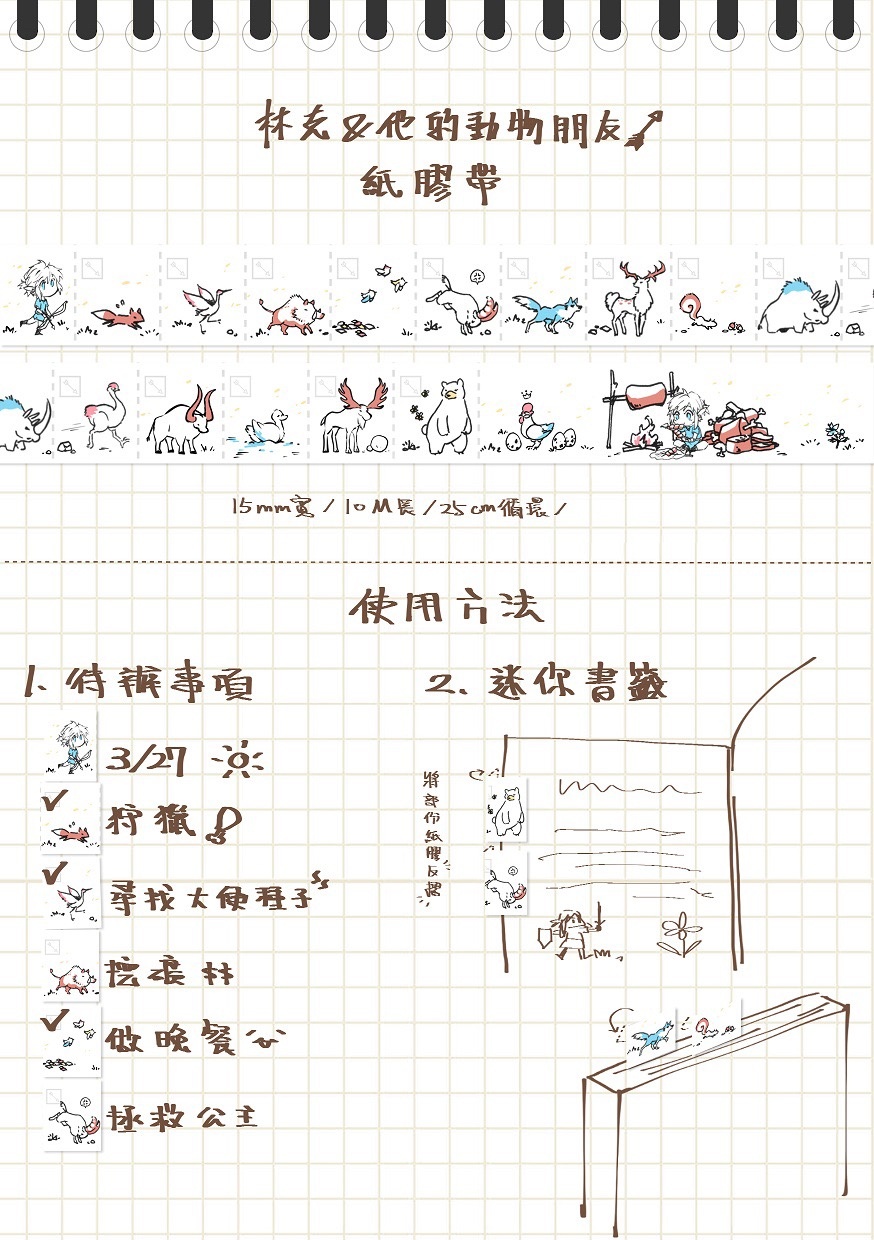 林克&他的動物朋友
紙膠帶
15mm寬/10M長/25cm循環/
使用方法
1. 待辦事項
3/27
狩獵
尋找大便種子
挖礦
做晚餐
拯救公主
2. 迷你書籤
將部份紙膠反摺